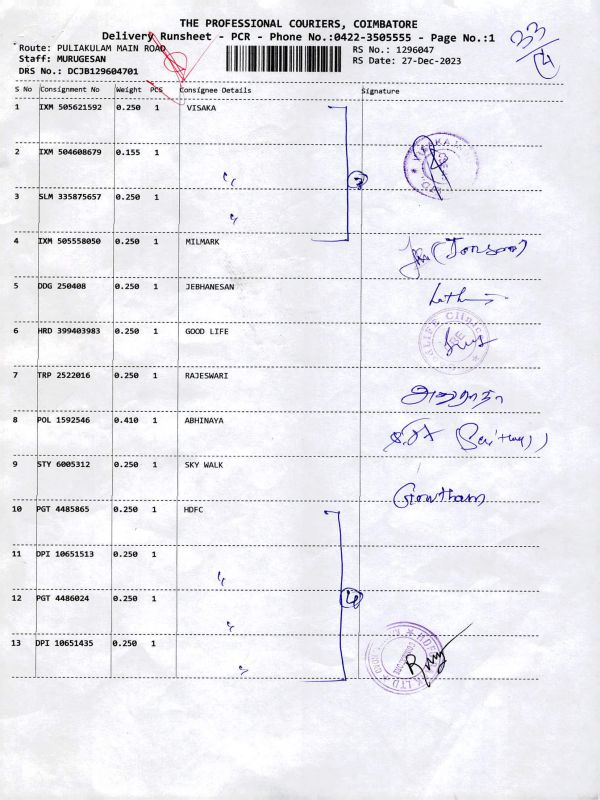 THE PROFESSIONAL COURIERS, COIMBATORE
Delivery Runsheet - PCR - Phone No.:0422-3505555 - Page No.:1
Route: PULIAKULAM MAIN ROAD RS No.: 1296047
Staff: MURUGESAN RS Date: 27-Dec-2023
DRS No.: DCJB129604701
33
4
S No Consignment No Weight PCS Consignee Details Signature
1 IXM 505621592 0.250 1 VISAKA
2 IXM 504608679 0.155 1 〃
3 SLM 335875657 0.250 1 〃
3
4 IXM 505558050 0.250 1 MILMARK (Jonson)
5 DDG 250408 0.250 1 JEBHANESAN
6 HRD 399403983 0.250 1 GOOD LIFE
7 TRP 2522016 0.250 1 RAJESWARI அனுராதா
8 POL 1592546 0.410 1 ABHINAYA
9 STY 6005312 0.250 1 SKY WALK Gowtham
10 PGT 4485865 0.250 1 HDFC
11 DPI 10651513 0.250 1 〃
12 PGT 4486024 0.250 1 〃
4
13 DPI 10651435 0.250 1 〃